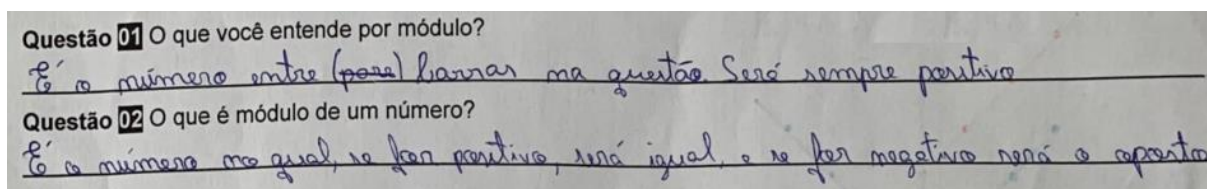 Questão 01 O que você entende por módulo?
É o número entre (para) barras na questão. Será sempre positivo
Questão 02 O que é módulo de um número?
É o número no qual, se for positivo, será igual, e se for negativo será o oposto